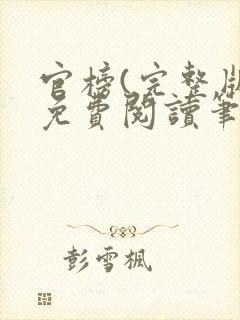 官榜(完整版
免費閱讀筆
彭雪楓